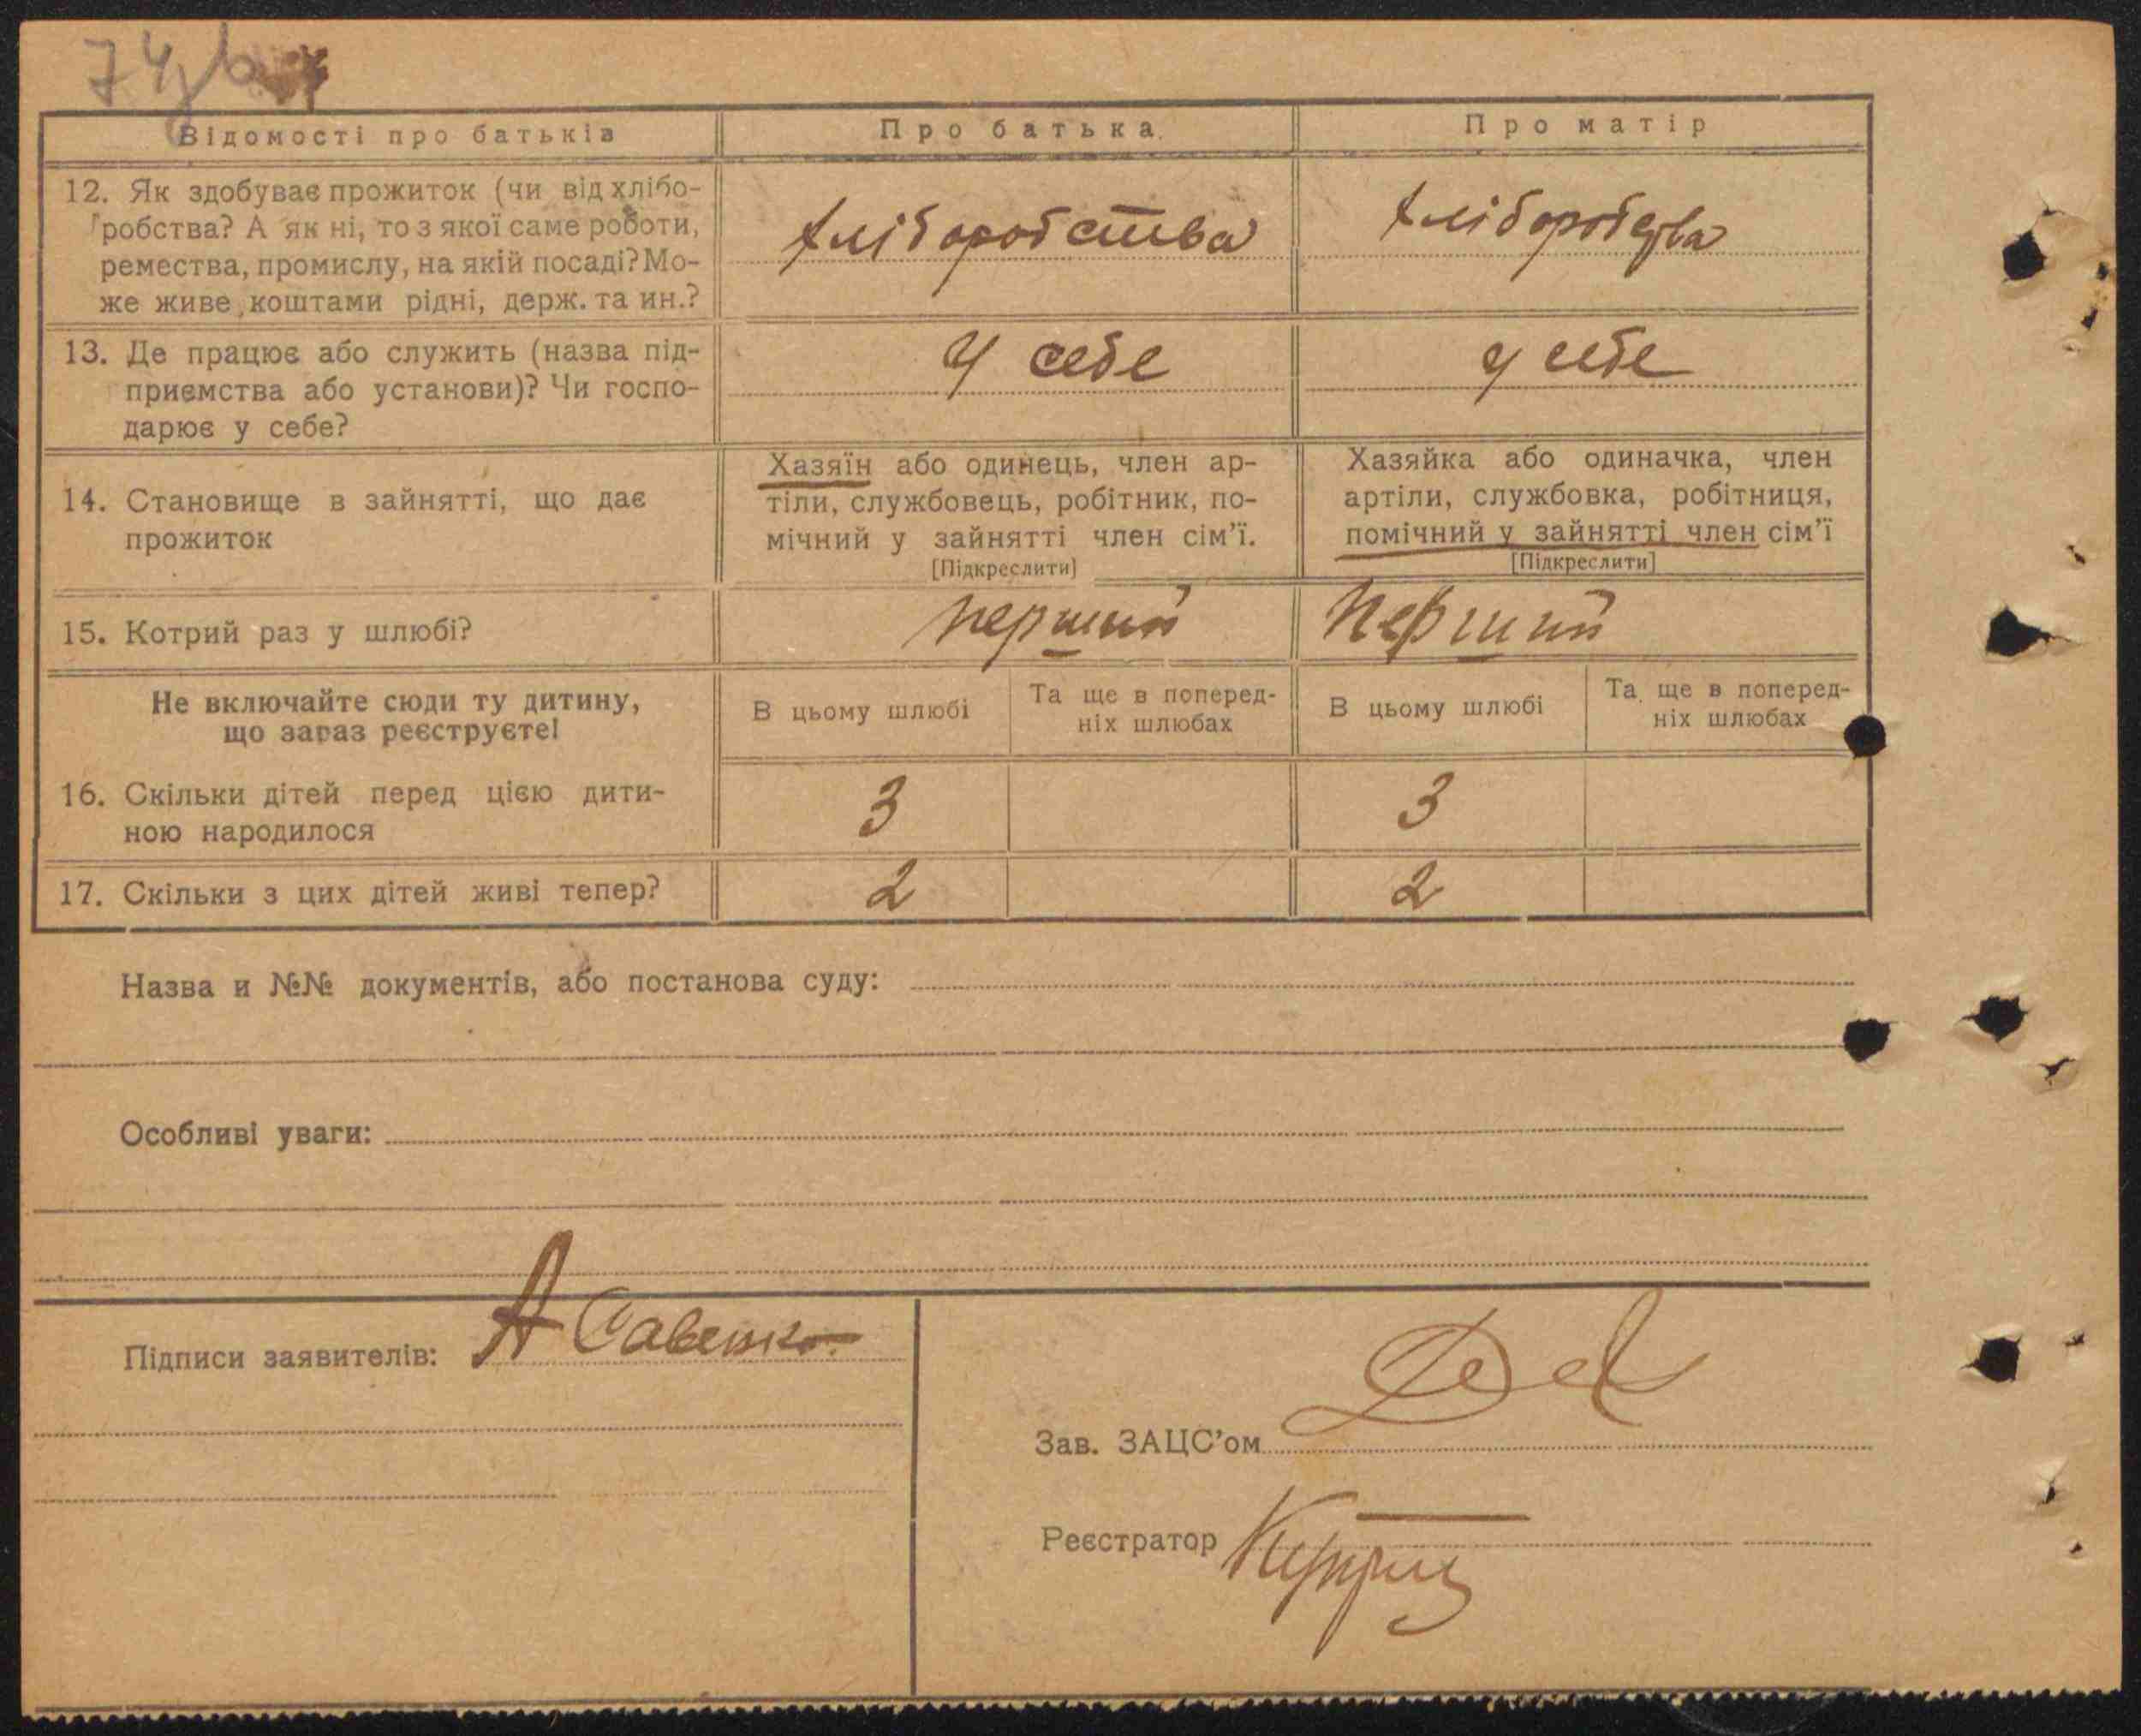 Відомості про батьків
Про батька
Про матір
12. Як здобуває прожиток (чи від хлібо-
робства? А як ні, то з якої саме роботи,
ремества, промислу, на якій посаді? Мо-
же живе коштами рідні, держ. та ин.?
хліборобства
хліборобства
13. Де працює або служить (назва під-
приємства або установи)? Чи госпо-
дарює у себе?
у себе
у себе
14. Становище в зайнятті, що дає
прожиток
Хазяїн або одинець, член ар-
тіли, службовець, робітник, по-
мічний у зайнятті член сім'ї.
[Підкреслити]
Хазяйка або одиначка, член
артіли, службовка, робітниця,
помічний у зайнятті член сім'ї
[Підкреслити]
15. Котрий раз у шлюбі?
перший
перший
Не включайте сюди ту дитину,
що зараз реєструєте!
В цьому шлюбі
Та ще в поперед-
ніх шлюбах
В цьому шлюбі
Та ще в поперед-
ніх шлюбах
16. Скільки дітей перед цією дити-
ною народилося
3
3
17. Скільки з цих дітей живі тепер?
2
2
Назва и №№ документів, або постанова суду:
Особливі уваги:
Підписи заявителів: А Савенко
Зав. ЗАЦС'ом
Реєстратор